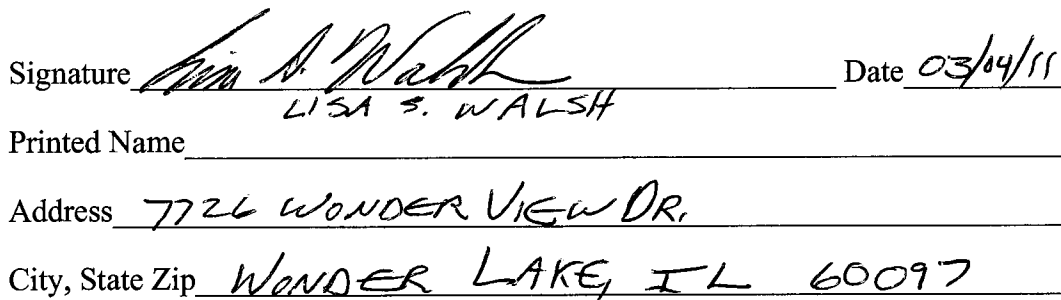 Signature Lisa S. Walsh Date 03/04/11
LISA S. WALSH
Printed Name
Address 7726 WONDER VIEW DR.
City, State Zip WONDER LAKE, IL 60097